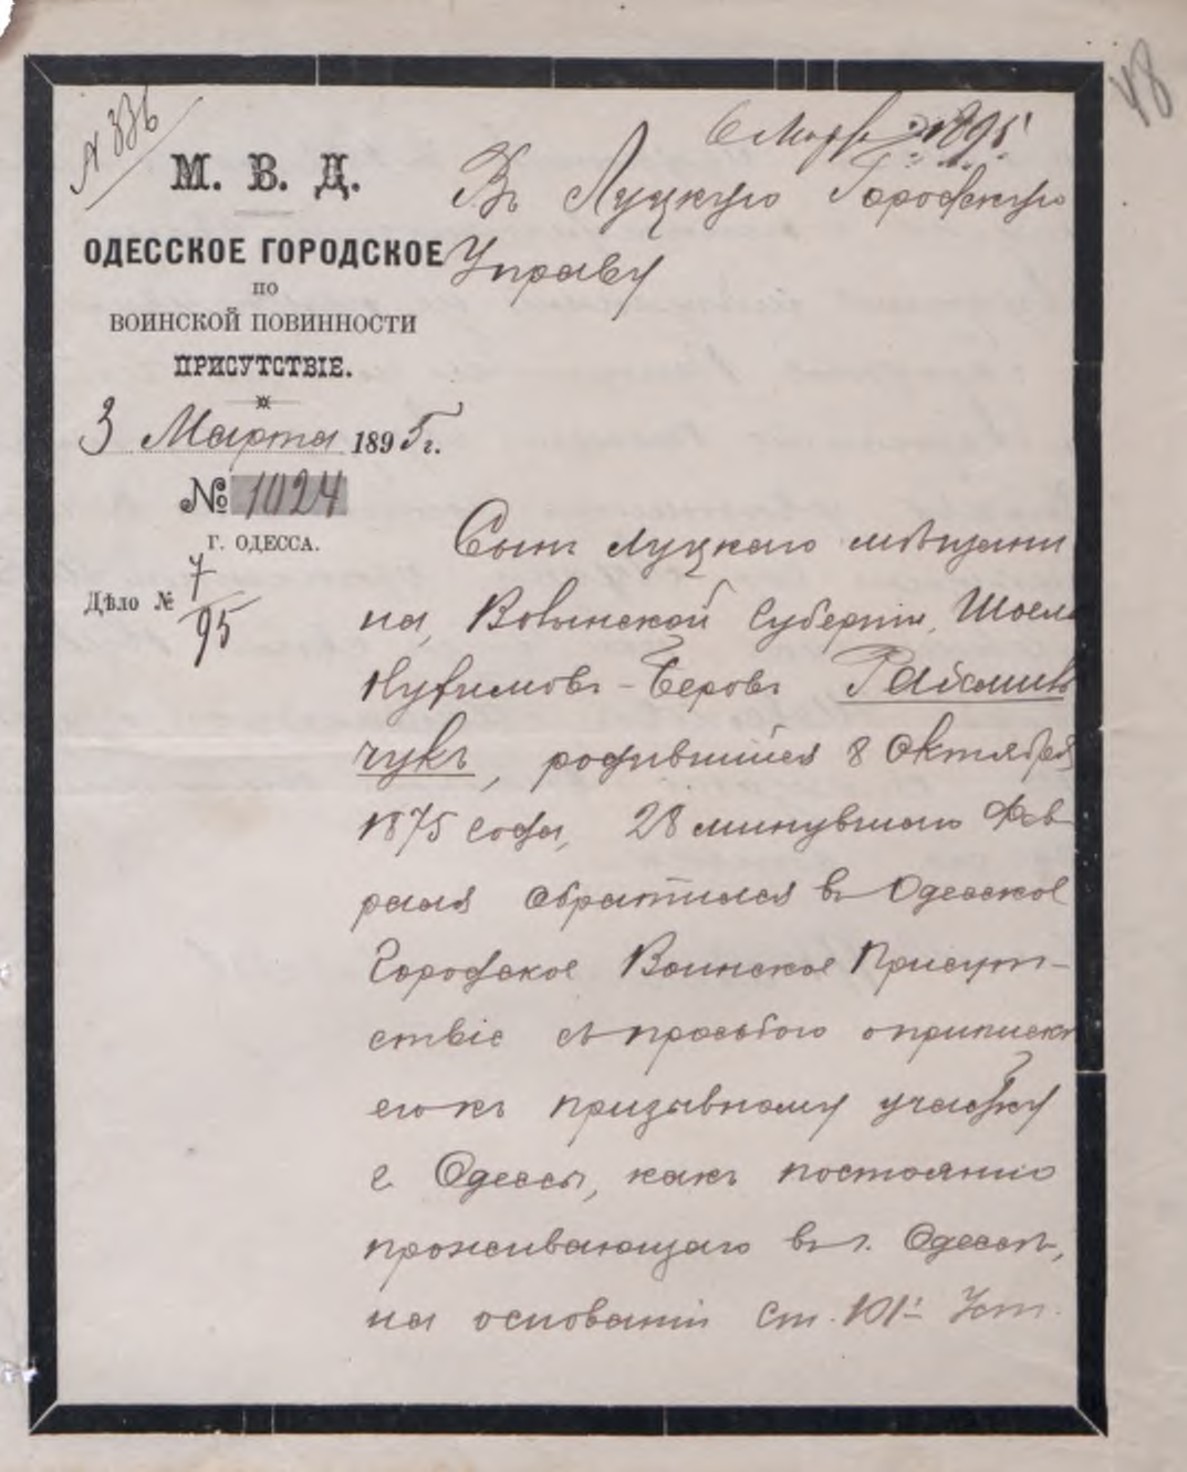 48
№ 336
6 Марта 1895 г.
М. В. Д.
ОДЕССКОЕ ГОРОДСКОЕ
ПО
ВОИНСКОЙ ПОВИННОСТИ
ПРИСУТСТВІЕ.
3 Марта 1895 г.
№ 1024
Г. ОДЕССА.
Дѣло № 7/95
Въ Луцкую Городскую
Управу
Сынъ луцкаго мѣщани
на, Волынской губерніи, Шоель
Нухимовъ-Беровъ
чукъ, родившійся 8 Октября
1875 года, 28 минувшаго Фев
раля обратился въ Одесское
Городское Воинское Присут-
ствіе съ просьбою о припискѣ
его къ призывному участку
г. Одессы, какъ постоянно
проживающаго въ г. Одессѣ,
на основаніи ст. 101 Уст.